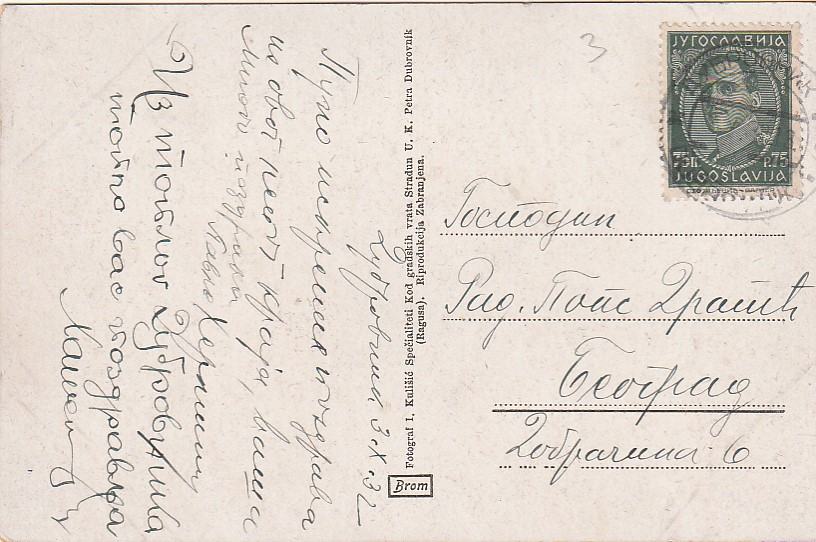 3
ЈУГОСЛАВИЈА
75П P.75
JUGOSLAVIJA
Господин
Рад.
Београд
Добрачина 6
Fotograf I. Kulišić Spečialiteti Kod gradskih vrata Stradun U. K. Petra Dubrovnik
(Ragusa). Riprodukcija Zabranjena.
Brom
Дубровник 3.X.32
Пуно искрених поздрава
из овог краја, ваша
поздрава
Из топлог Дубровника
топло вас поздравља